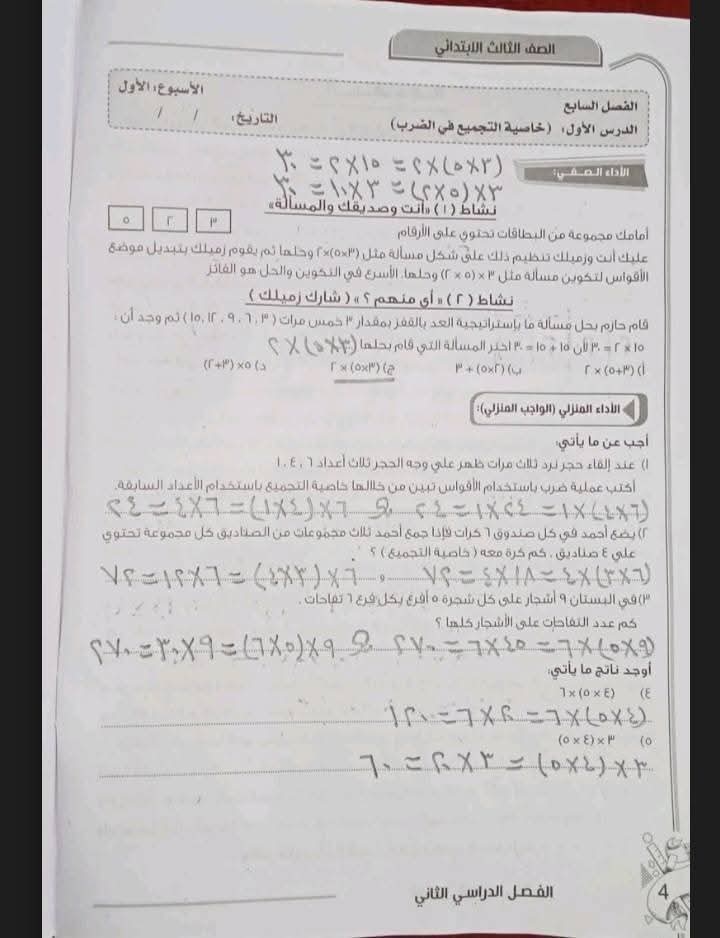 الصف الثالث الابتدائي
الفصل السابع
الأسبوع: الأول
الدرس الأول: (خاصية التجميع في الضرب)
التاريخ: / /
الأداء الصفي:
(٣×٥)×٢ = ١٥×٢ = ٣٠
٣×(٥×٢) = ٣×١٠ = ٣٠
نشاط (١) «أنت وصديقك والمسألة»
أمامك مجموعة من البطاقات تحتوي على الأرقام
٣ ٢ ٥
عليك أنت وزميلك تنظيم ذلك على شكل مسألة مثل (٣×٥)×٢ وحلها ثم يقوم زميلك بتبديل موضع
الأقواس لتكوين مسألة مثل ٣×(٥ × ٢) وحلها. الأسرع في التكوين والحل هو الفائز
نشاط (٢) «أي منهم ؟» (شارك زميلك)
قام حازم بحل مسألة ما بإستراتيجية العد بالقفز بمقدار ٣ خمس مرات (٣, ٦, ٩, ١٢, ١٥) ثم وجد أن :
٢ × ١٥ = ٣٠ لأن ١٥ + ١٥ = ٣٠ اختر المسألة التي قام بحلها (٣×٥)×٢
أ) (٣+٥) × ٢ ب) (٢×٥) + ٣ ج) (٣×٥) × ٢ د) ٥× (٣+٢)
الأداء المنزلي (الواجب المنزلي):
أجب عن ما يأتي:
١) عند إلقاء حجر نرد ثلاث مرات ظهر علي وجه الحجر ثلاث أعداد ٦ , ٤ , ١
أكتب عملية ضرب باستخدام الأقواس تبين من خلالها خاصية التجميع باستخدام الأعداد السابقة.
(٦×٤)×١ = ٢٤×١ = ٢٤ & ٦×(٤×١) = ٦×٤ = ٢٤
٢) يضع أحمد في كل صندوق ٦ كرات فإذا جمع أحمد ثلاث مجموعات من الصناديق كل مجموعة تحتوي
علي ٤ صناديق . كم كرة معه (خاصية التجميع) ؟
(٦×٣)×٤ = ١٨×٤ = ٧٢ , ٦×(٣×٤) = ٦×١٢ = ٧٢
٣) في البستان ٩ أشجار على كل شجرة ٥ أفرع بكل فرع ٦ تفاحات .
كم عدد التفاحات على الأشجار كلها ؟
(٩×٥)×٦ = ٤٥×٦ = ٢٧٠ & ٩×(٥×٦) = ٩×٣٠ = ٢٧٠
أوجد ناتج ما يأتي:
٤) (٤ × ٥) ×٦
(٤×٥)×٦ = ٢٠×٦ = ١٢٠
٥) ٣ ×(٤ × ٥)
٣×(٤×٥) = ٣×٢٠ = ٦٠
الفصل الدراسي الثاني
4